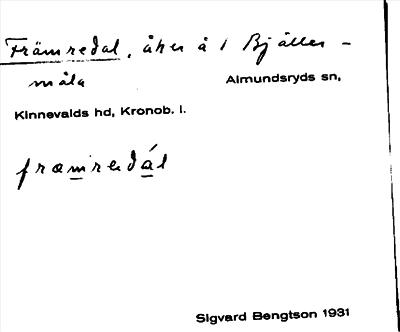 Främredal, åker å 1 Bjäller-
måla Almundsryds sn,
Kinnevalds hd, Kronob. l.
Sigvard Bengtson 1931